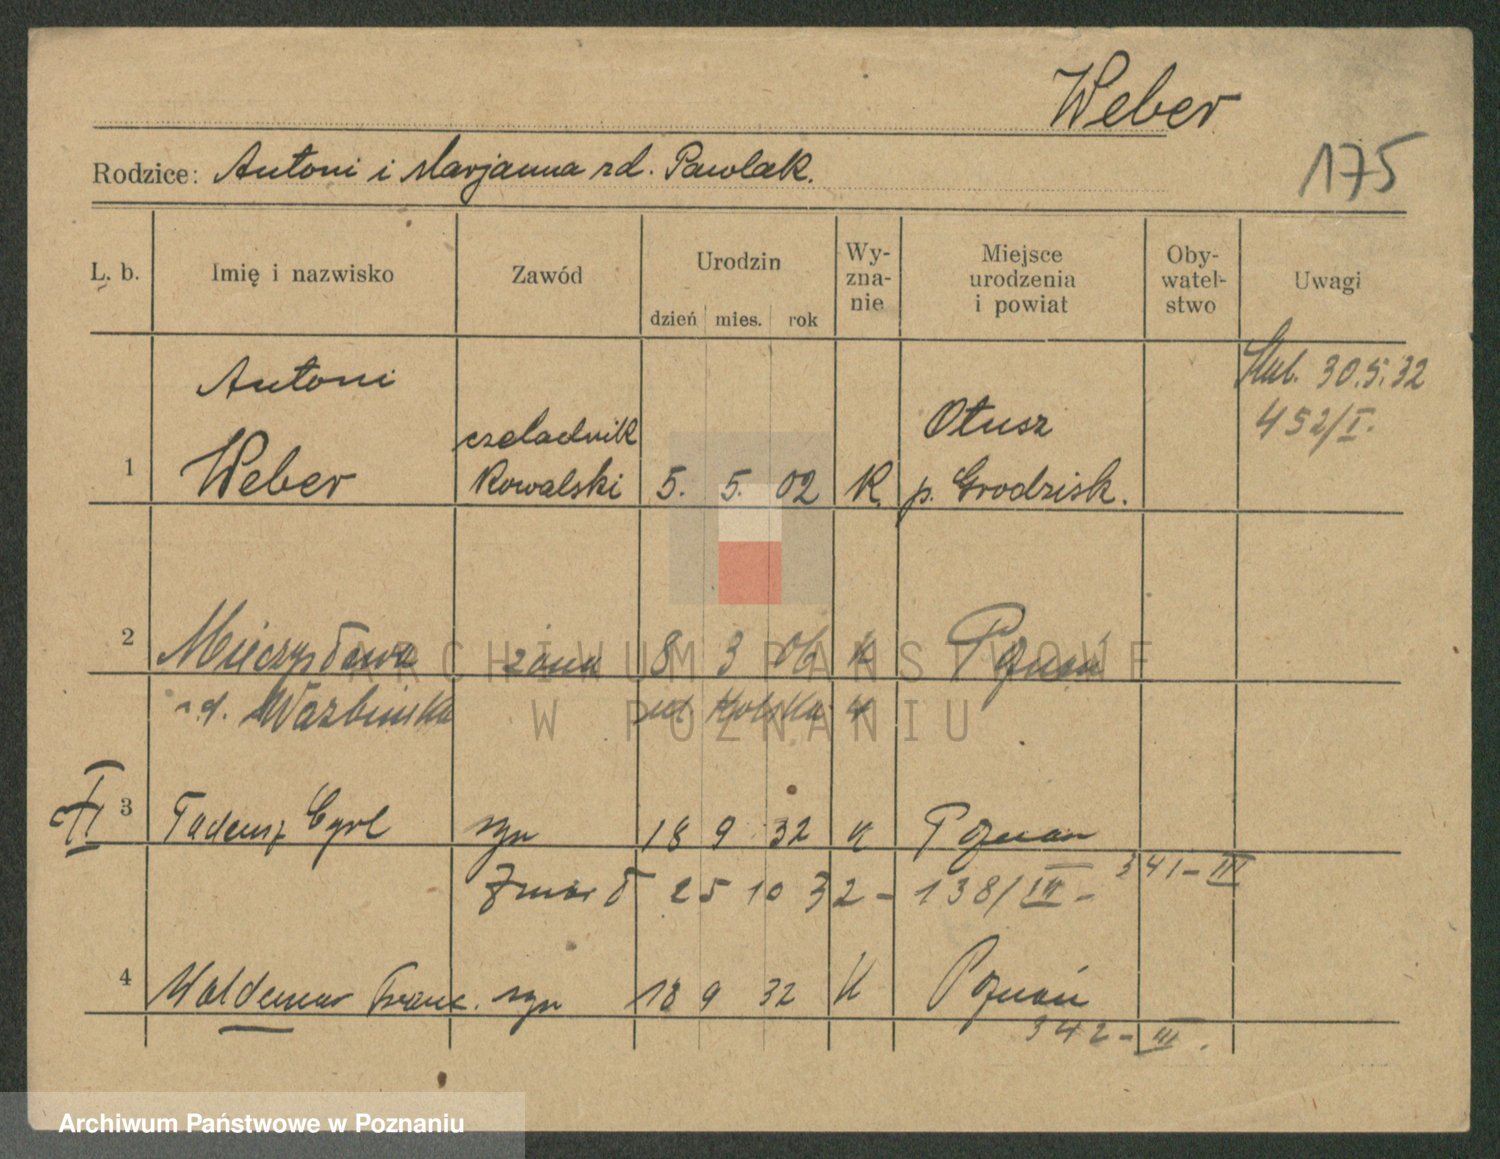 Weber
175
Rodzice: Antoni i Marjanna rd. Pawlak.
L. b. Imię i nazwisko Zawód Urodzin dzień mies. rok Wyznanie Miejsce urodzenia i powiat Obywatelstwo Uwagi
ślub. 30.5.32
452/I.
1 Antoni Weber czeladnik kowalski 5. 5. 02 K. Otusz p. Grodzisk.
2 Mieczysława żona 8 3 06 K Poznań
rd. ul
3 Tadeusz Cyrl syn 18 9 32 K Poznań
341-III
Zmarł 25 10 32 - 138/III -
4 Waldemar Franc. syn 18 9 32 K Poznań
342-III.
ARCHIWUM PAŃSTWOWE
W POZNANIU
Archiwum Państwowe w Poznaniu